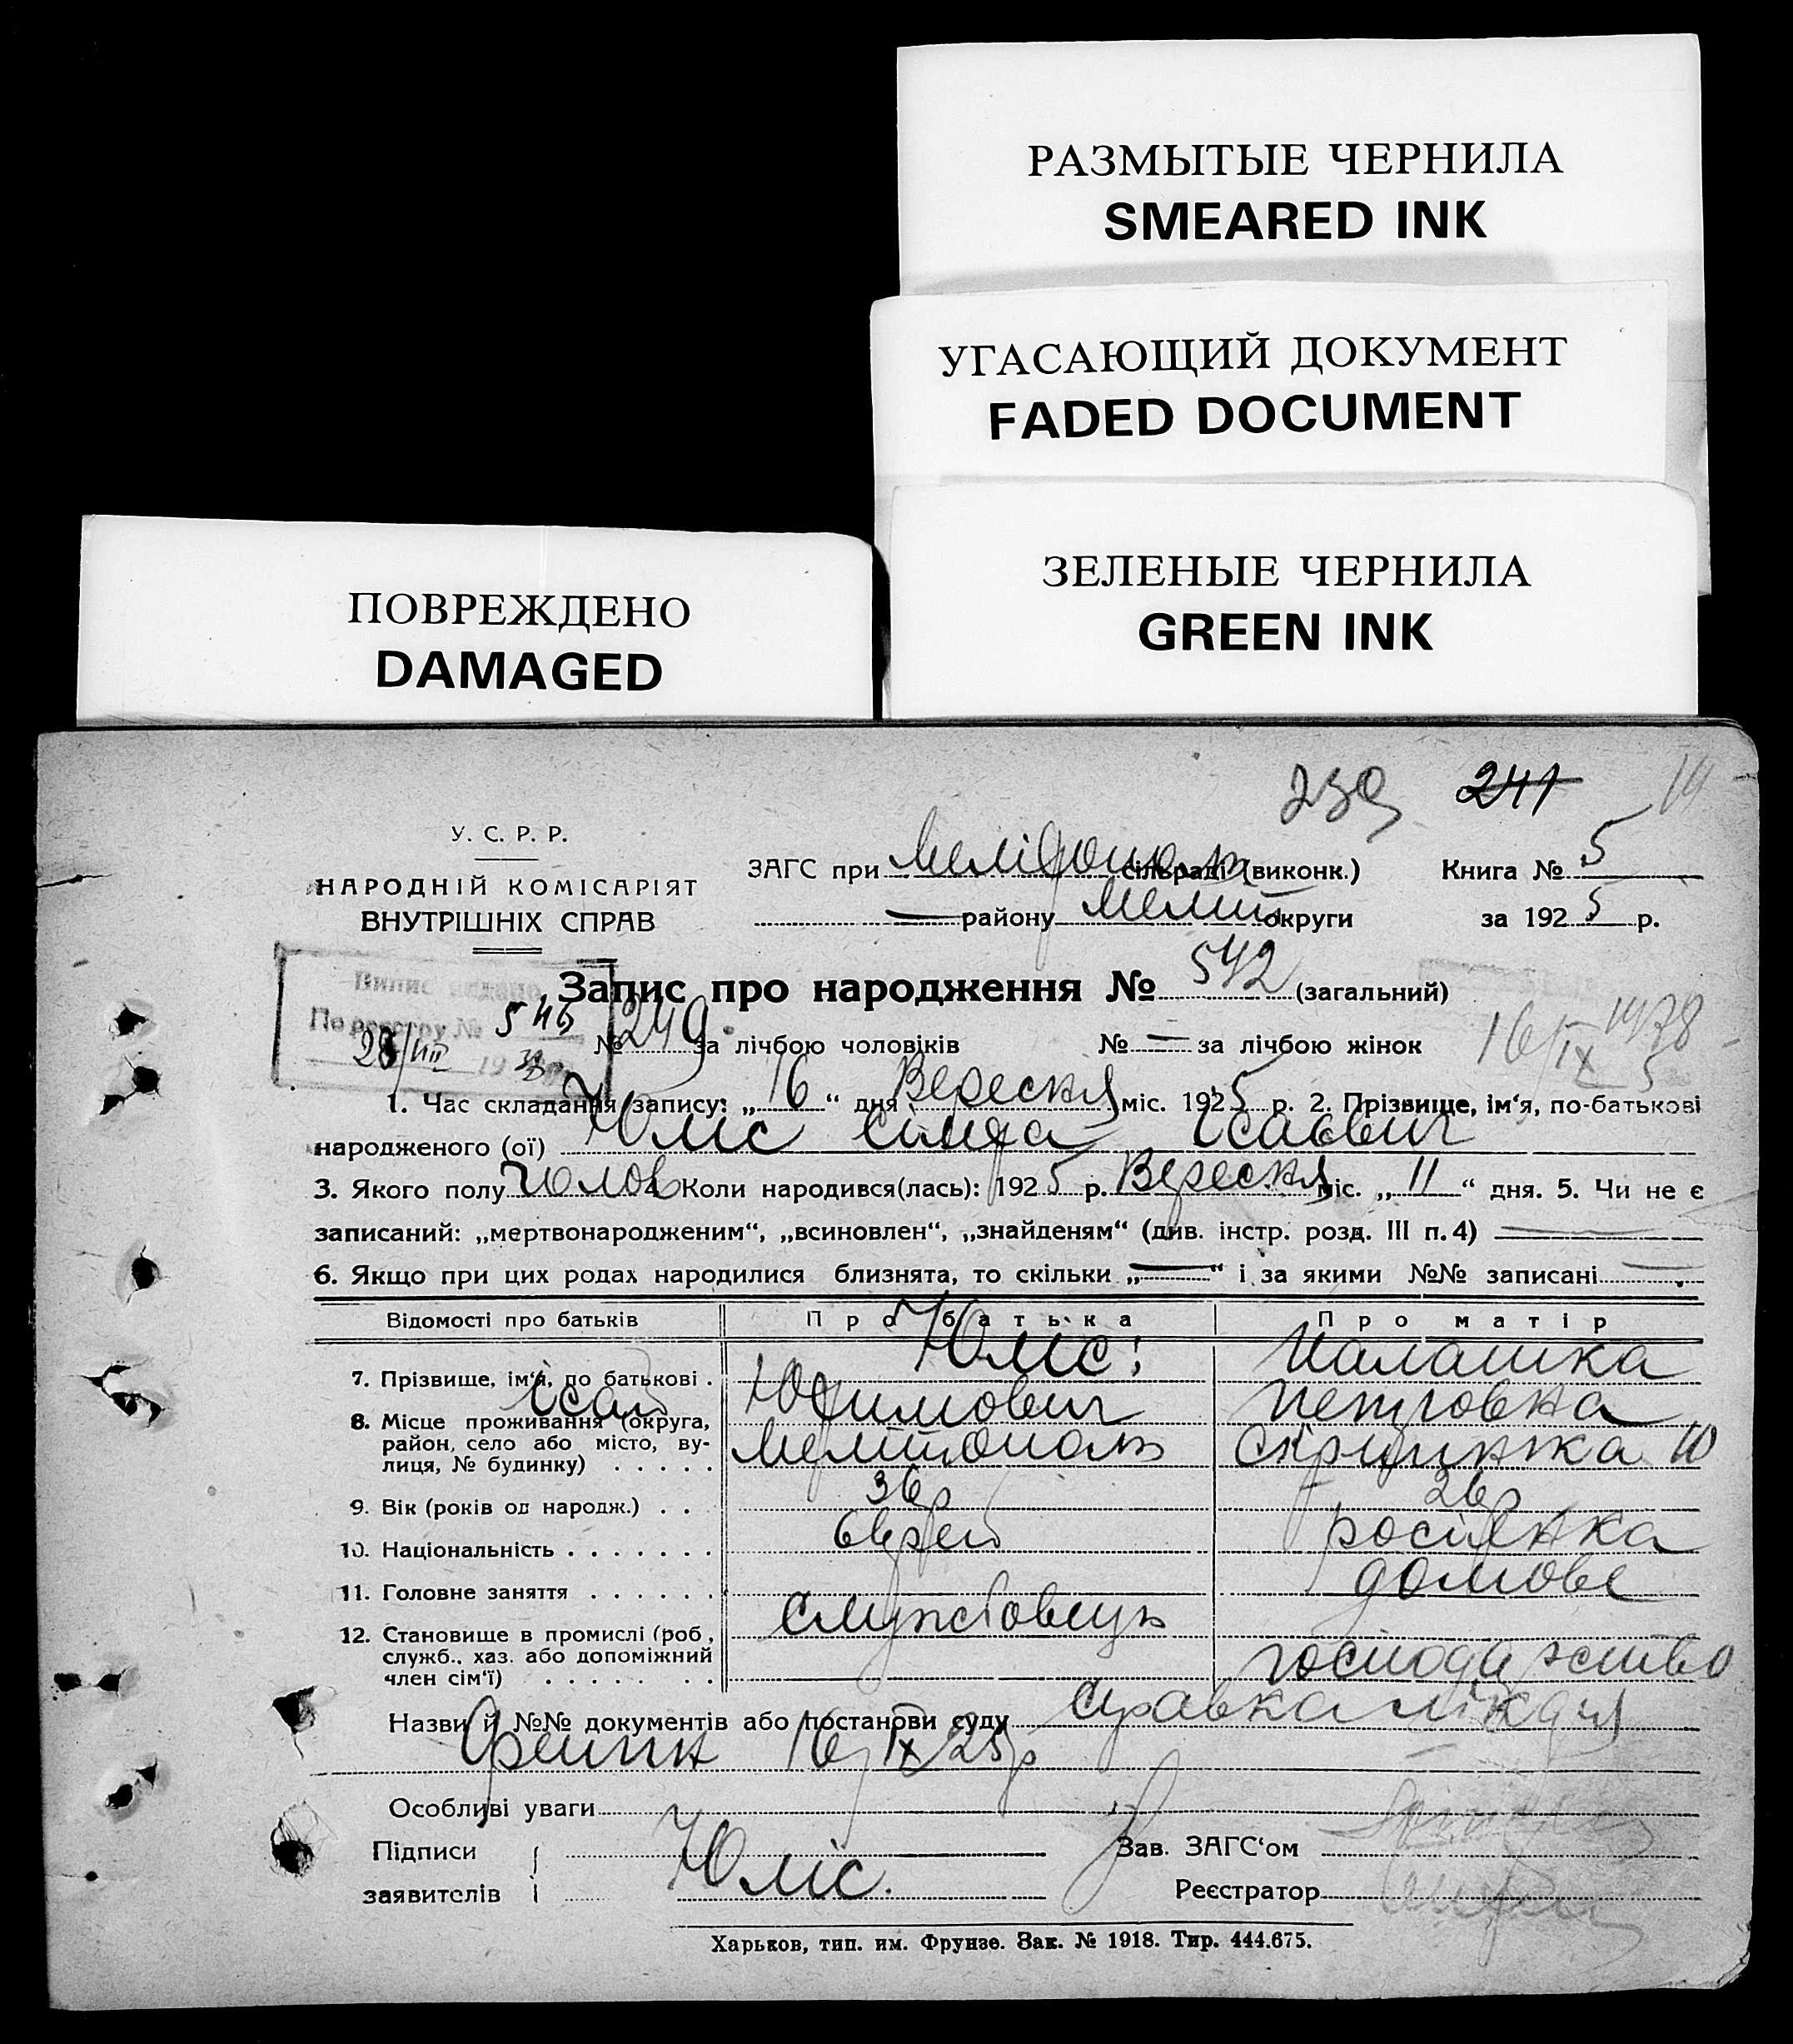 РАЗМЫТЫЕ ЧЕРНИЛА
SMEARED INK
УГАСАЮЩИЙ ДОКУМЕНТ
FADED DOCUMENT
ЗЕЛЕНЫЕ ЧЕРНИЛА
GREEN INK
ПОВРЕЖДЕНО
DAMAGED
239 241
У. С. Р. Р.
НАРОДНІЙ КОМІСАРІЯТ
ВНУТРІШНІХ СПРАВ
ЗАГС при сільраді (виконк.) Книга № 5
— району Мелит округи за 1925 р.
Випис видано
По реєстру № 546
28/VIII 19
Запис про народження № 542 (загальний)
№ 249 за лічбою чоловіків № — за лічбою жінок
16/IX
1. Час складання запису: „16“ дня Вересня міс. 1925 р. 2. Прізвище, ім'я, по-батькові
народженого (ої) Юліс Сіма Ісаєвич
3. Якого полу чолов 4. Коли народився(лась): 1925 р. Вересня міс. „11“ дня. 5. Чи не є
записаний: „мертвонародженим“, „всиновлен“, „знайденям“ (див. інстр. розд. III п. 4) —
6. Якщо при цих родах народилися близнята, то скільки „—“ і за якими №№ записані —
Відомості про батьків Про батька Про матір
7. Прізвище, ім'я, по батькові . Юліс Ісай Юфимович Палашка Петровна
8. Місце проживання (округа,
район, село або місто, ву-
лиця, № будинку) . . . . . Мелітополь 10
9. Вік (років од народж.) . . 36р 26р
10. Національність . . . . . . . Єврей росіянка
11. Головне заняття . . . . . . домове
12. Становище в промислі (роб,
служб., хаз. або допоміжний
член сім'ї) . . . . . . . Службовець господарство
Назви й №№ документів або постанови суду Справка лікаря
16/IX 25р
Особливі уваги
Підписи Юліс. Зав. ЗАГС'ом
заявителів Реєстратор
Харьков, тип. им. Фрунзе. Зак. № 1918. Тир. 444.675.